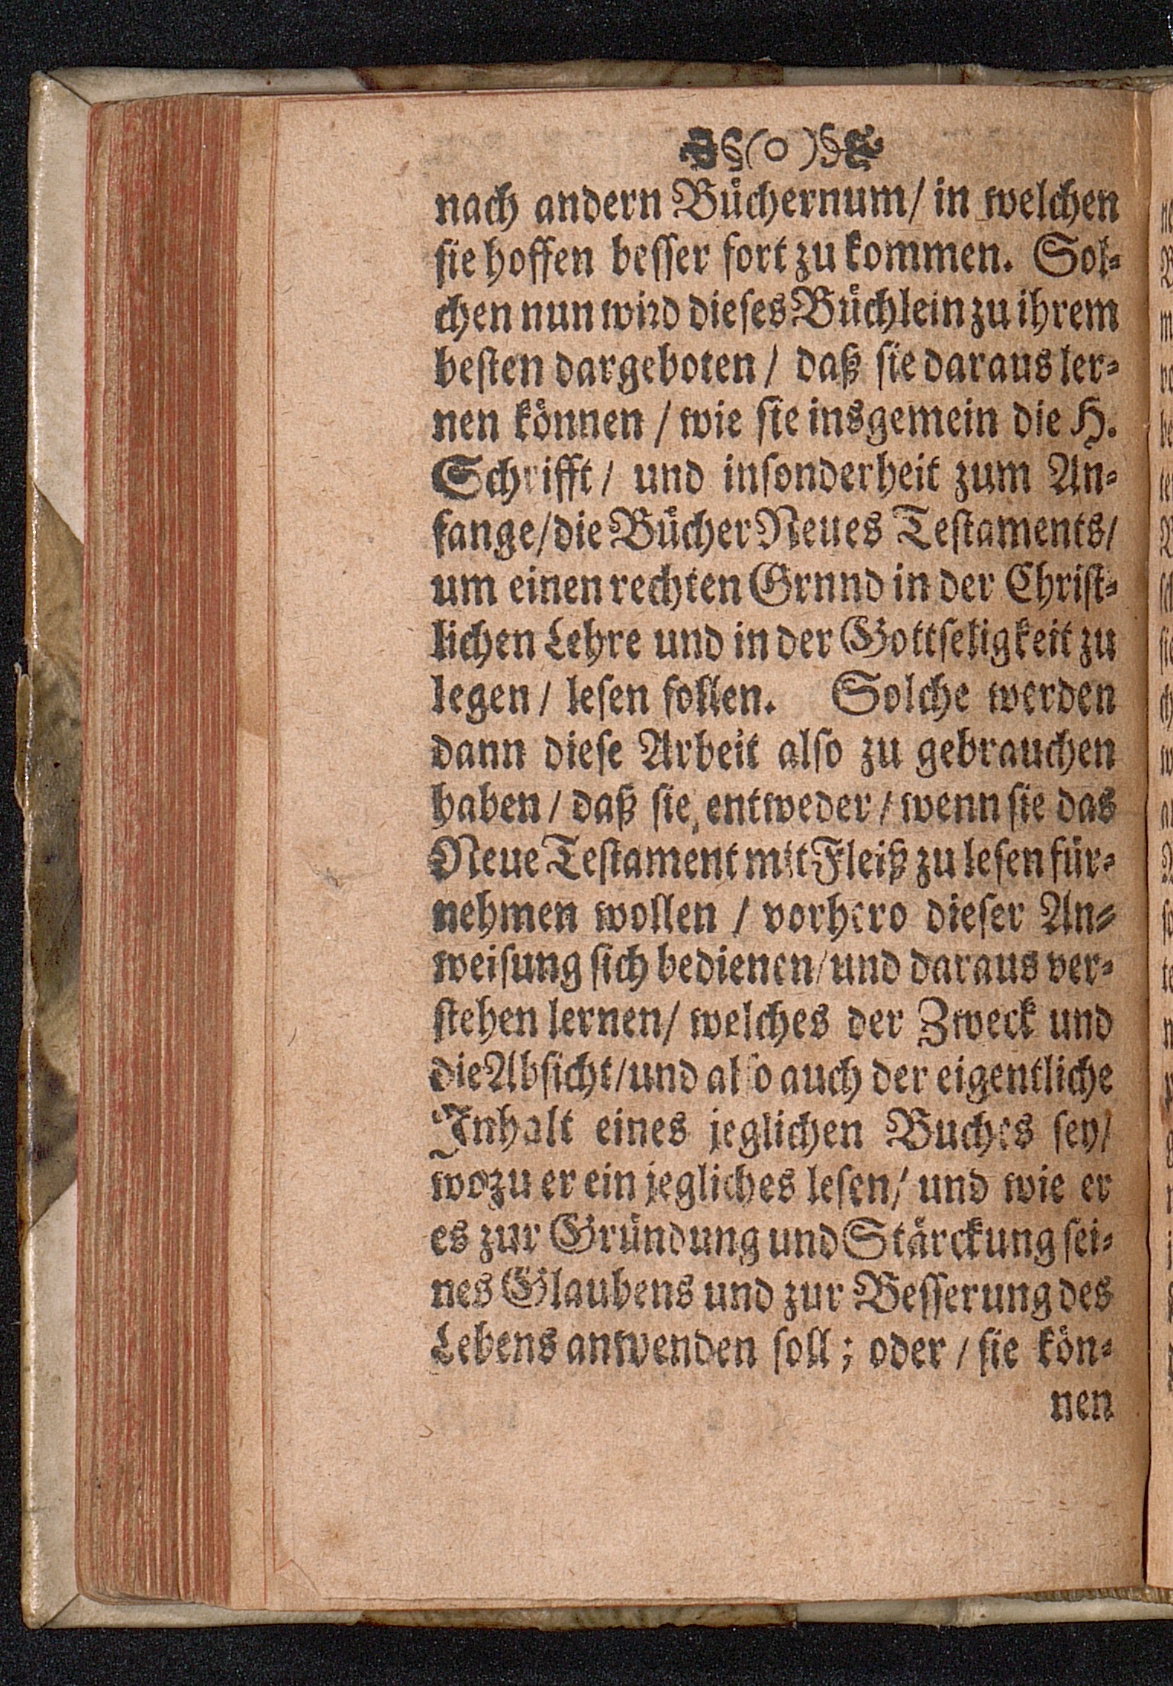 §(o)§
nach andern Büchernum/ in welchen
sie hoffen besser fort zu kommen. Sol-
chen nun wird dieses Büchlein zu ihrem
besten dargeboten / daß sie daraus ler-
nen können / wie sie insgemein die H.
Schrifft / und insonderheit zum An-
fange/die Bücher Neues Testaments/
um einen rechten Grnnd in der Christ-
lichen Lehre und in der Gottseligkeit zu
legen / lesen sollen. Solche werden
dann diese Arbeit also zu gebrauchen
haben / daß sie entweder / wenn sie das
Neue Testament mit Fleiß zu lesen für-
nehmen wollen / vorhero dieser An-
weisung sich bedienen/und daraus ver-
stehen lernen/ welches der Zweck und
die Absicht/und also auch der eigentliche
Inhalt eines jeglichen Buches sey/
wozu er ein jegliches lesen/ und wie er
es zur Gründung und Stärckung sei-
nes Glaubens und zur Besserung des
Lebens anwenden soll; oder / sie kön-
nen